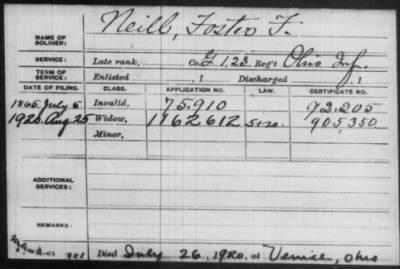 NAME OF SOLDIER: Neill, Foster F.
SERVICE: Late rank, Co. G 123 Reg't Ohio Inf.
TERM OF SERVICE: Enlisted , 1 Discharged , 1
DATE OF FILING. CLASS. APPLICATION NO. LAW. CERTIFICATE NO.
1865 July 5 Invalid, 75.910 92.205
1920 Aug 25 Widow, 1162612 905,350
Minor,
ADDITIONAL SERVICES:
REMARKS:
Died July 26, 1920, at Venice, Ohio